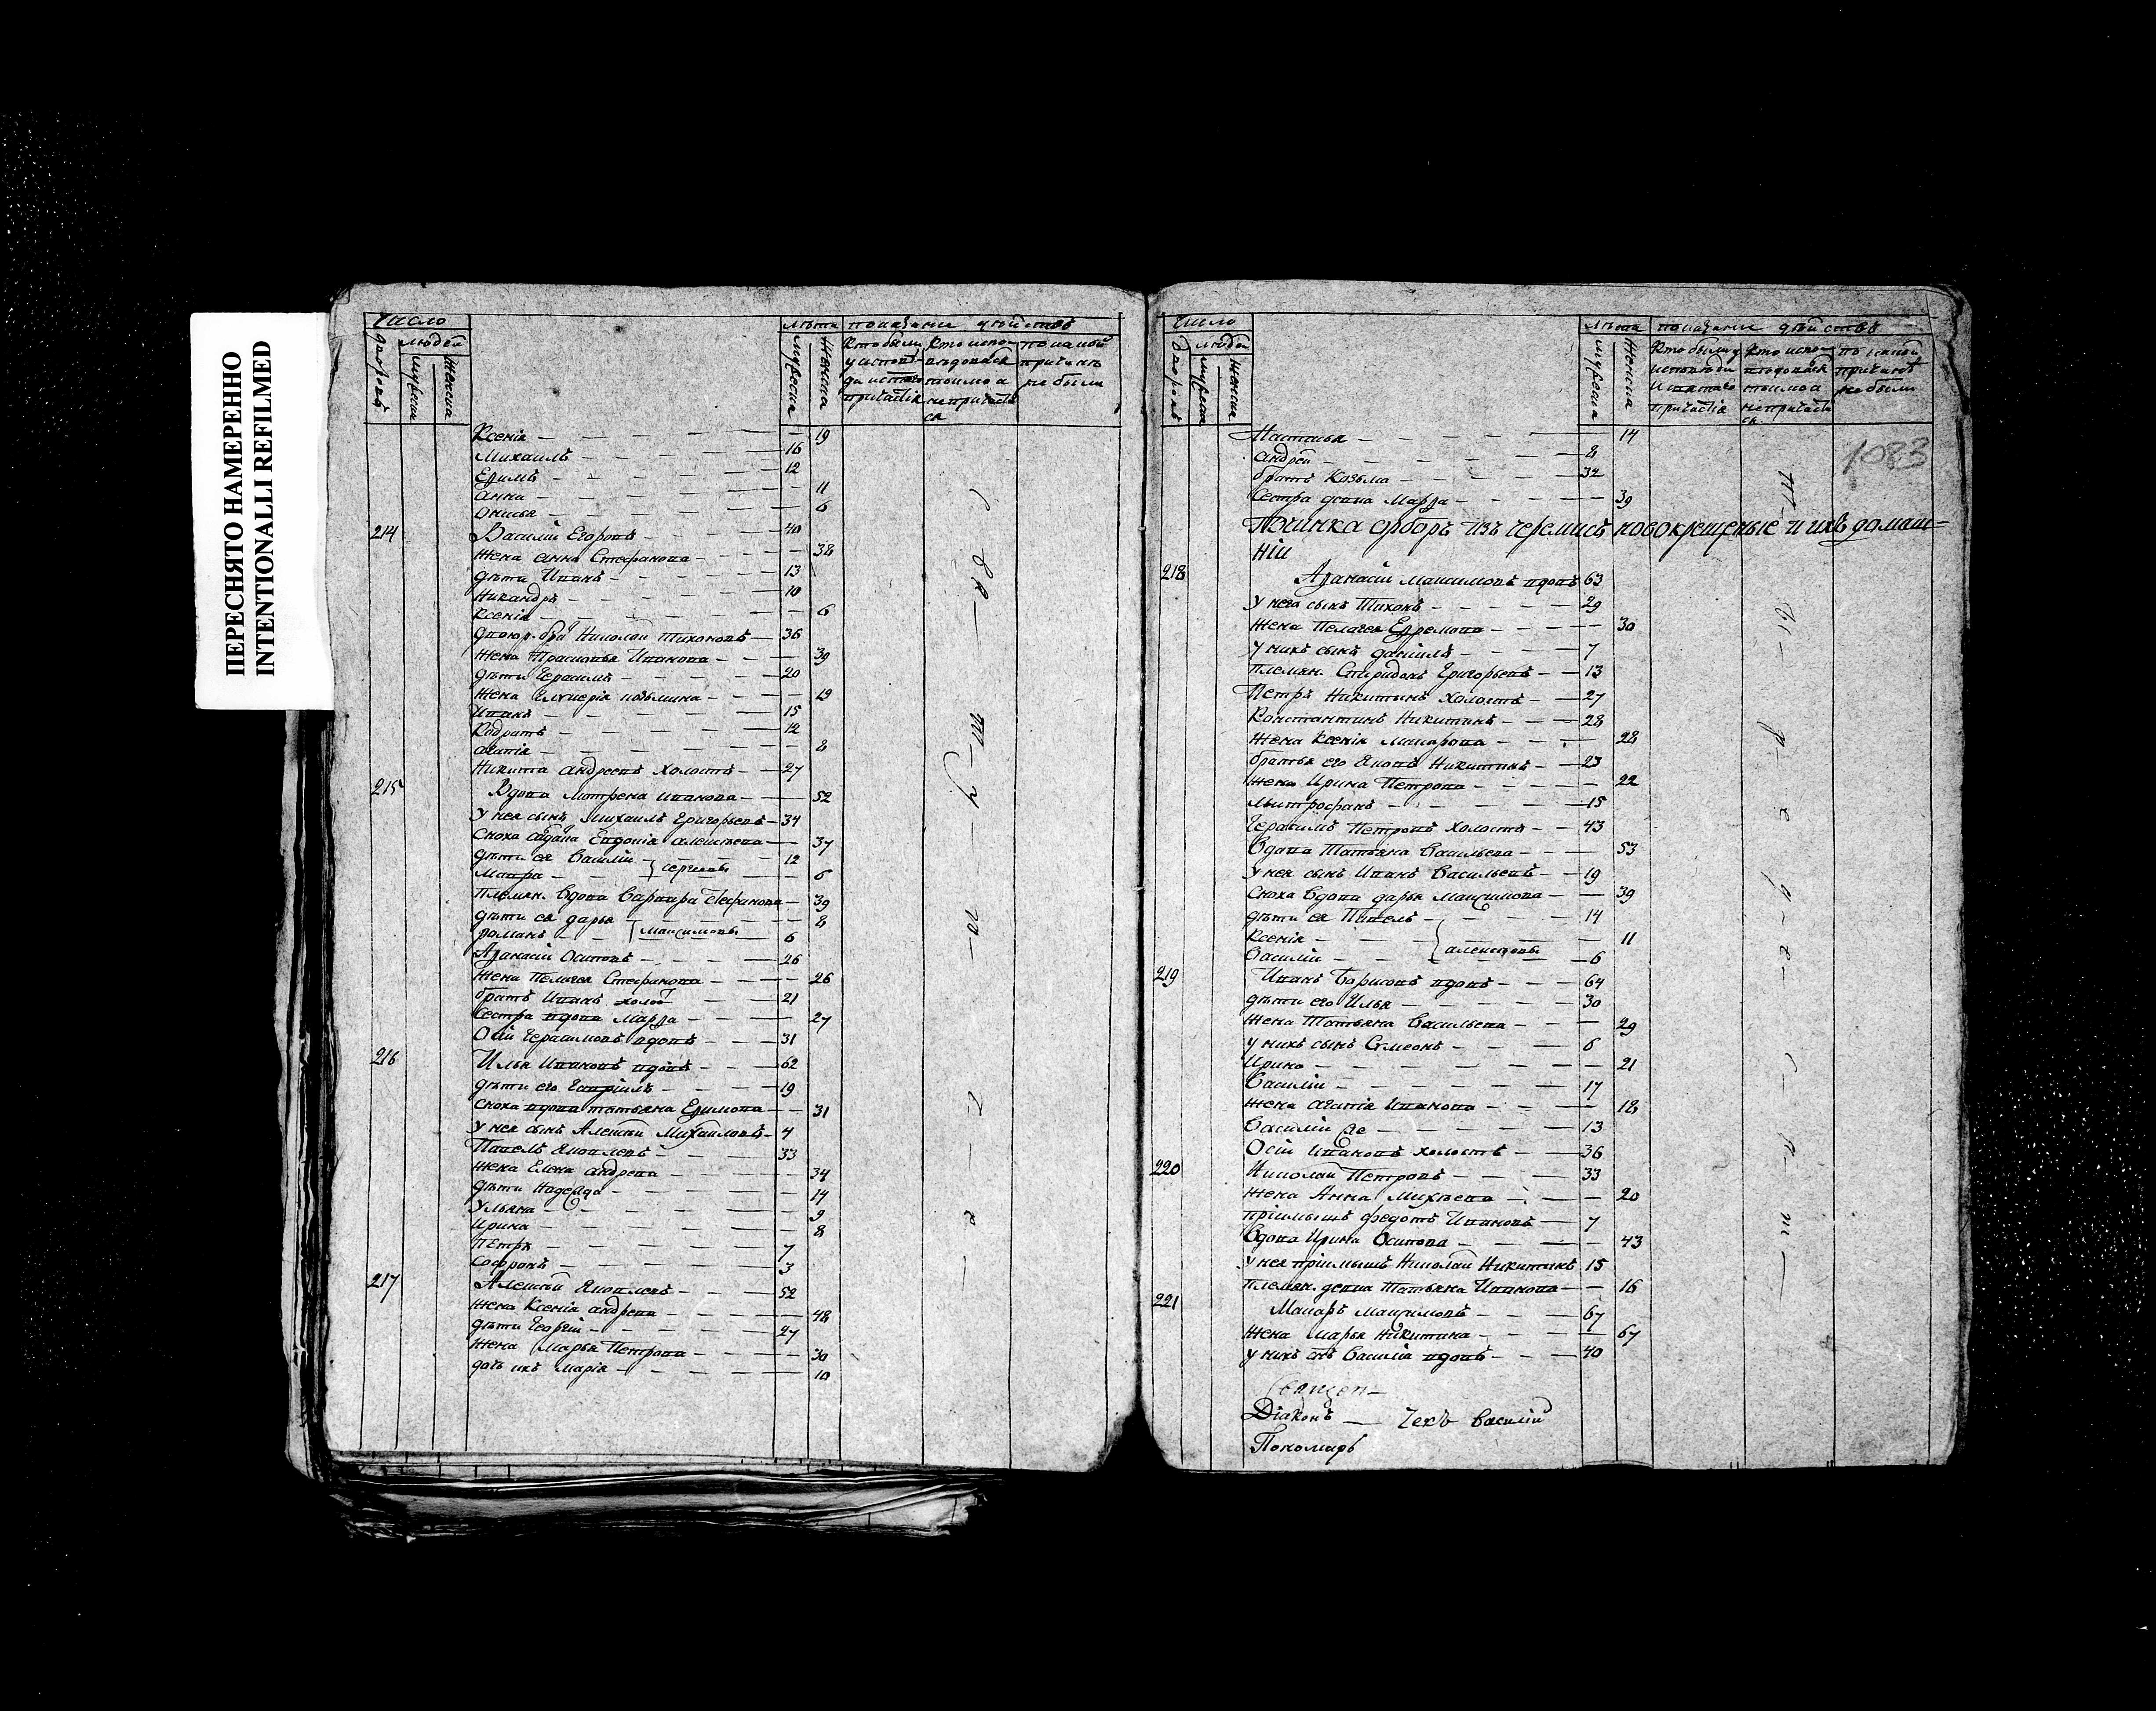 ПЕРЕСНЯТО НАМЕРЕННО
INTENTIONALLI REFILMED
Число
людей
дворовъ
мужеска
женска
лѣта
мужеска
женска
показание дѣйствъ
Кто были у исповѣди и святаго причастія
кто исповѣдовался токмо а не причастися
по какой причинѣ не были
Ксенія 19
Михаилъ 16
Ефимъ 12
анна 11
Онисья 6
214 Василий Егоровъ 40
жена анна Стефанова 38
дѣти Иванъ 13
Никандръ 10
Ксенія 6
двоюр. бра Николай Тихоновъ 36
жена Прасковья Иванова 39
дѣти Герасимъ 20
жена Гликерія козьмина 19
Иванъ 15
Кодратъ 12
агапія 8
Никита андреевъ холостъ 27
215 Вдова Матрена иванова 52
у нея сынъ Михаилъ Григорьевъ 34
Сноха вдова Евдокіа алексѣева 37
дѣти ея Василий 12
Мавра Сергѣевы 6
Племян. вдова Варвара Стефанова 39
дѣти ея дарья 8
романъ максимовы 6
Афанасій Осиповъ 26
жена Пелагея Стефанова 26
братъ Иванъ холос 21
Сестра вдова Марфа 27
Осій Герасимовъ вдовъ 31
216 Илья Ивановъ вдовъ 62
дѣти его Гавріилъ 19
Сноха вдова татьяна Ефимова 31
у нея сынъ Алексѣй Михайловъ 4
Павелъ Яковлевъ 33
жена Елена андреева 34
дѣти Надежда 14
Ульяна 9
Ирина 8
Петръ 7
Софронъ 3
217 Алексѣй Яковлевъ 52
жена Ксенія андреева 48
дѣти Георгій 27
жена Марья Петрова 30
дочь ихъ Марія 10
Число
людей
дворовъ
мужеска
женска
лѣта
мужеска
женска
показание дѣйствъ
Кто были у исповѣди и святаго причастія
кто исповѣдовался токмо а не причастися
по какой причинѣ не были
1083
Настасья 14
андрей 8
братъ Козьма 32
Сестра девка Марфа 39
Починка орборъ изъ черемисъ новокрещеные и ихъ домаш=
ніи
218 Афанасій Максимовъ вдовъ 63
у него сынъ Тихонъ 29
жена Пелагея Ефремова 30
у нихъ сынъ даніилъ 7
племян. Спиридонъ Григорьевъ 13
Петръ Никитинъ холостъ 27
Константинъ Никитинъ 28
жена Ксенія Макарова 28
братья его Яковъ Никитинъ 23
жена Ирина Петрова 22
Митрофанъ 15
Герасимъ Петровъ холостъ 43
Вдова Татьяна Васильева 53
у нея сынъ Иванъ Васильевъ 19
Сноха вдова дарья Максимова 39
дѣти ея Павелъ 14
Ксенія 11
Василий алексѣевы 6
219 Иванъ Борисовъ вдовъ 64
дѣти его Илья 30
жена Татьяна Васильева 29
у нихъ сынъ Симеонъ 6
Ирина 21
Василий 17
жена агапія Иванова 18
Василий же 13
Осій Ивановъ холостъ 36
220 Николай Петровъ 33
жена Анна Михѣева 20
пріимышъ федотъ Ивановъ 7
Вдова Ирина Осипова 43
у нея пріимышъ Николай Никитинъ 15
племян. девка Татьяна Иванова 16
221 Макаръ Максимовъ 67
жена Марья Никитина 67
у нихъ снъ Василій вдовъ 40
Діаконъ Василий
Пономарь